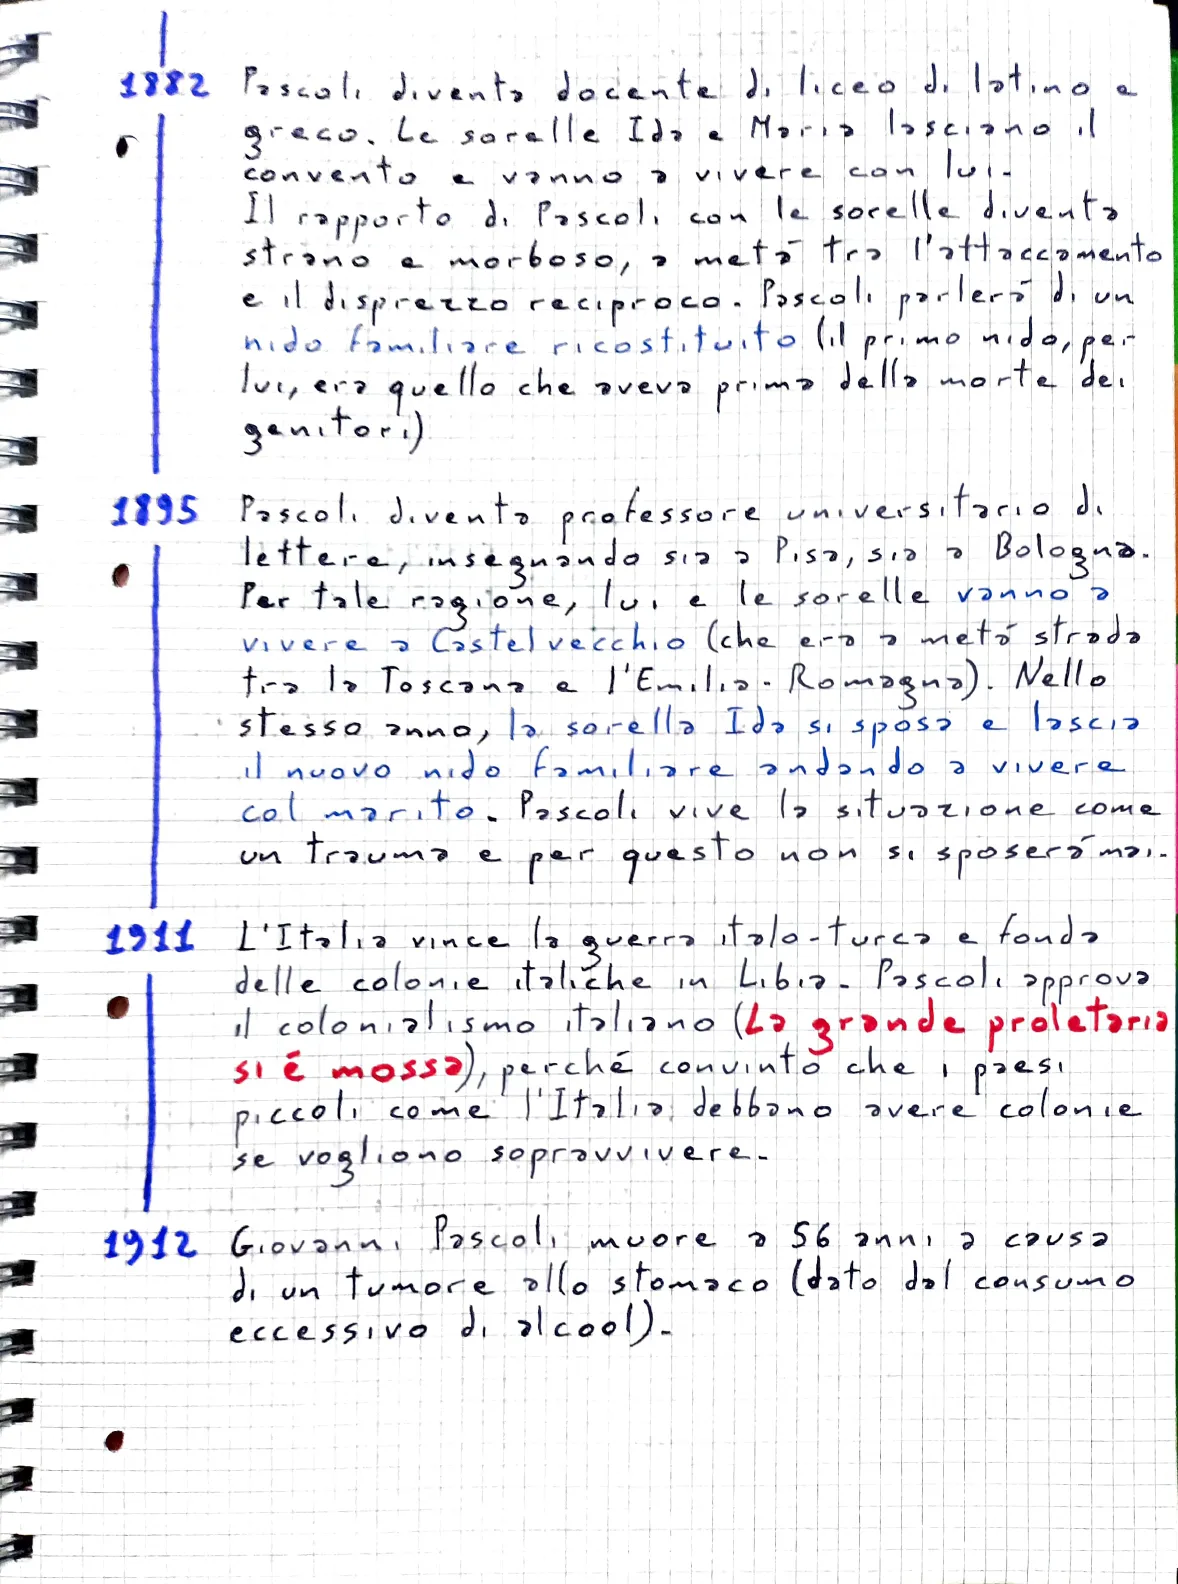 1882 Pascoli diventa docente di liceo di latino e
greco. Le sorelle Ida e Maria lasciano il
convento e vanno a vivere con lui.
Il rapporto di Pascoli con le sorelle diventa
strano e morboso, a metà tra l'attaccamento
e il disprezzo reciproco. Pascoli parlerà di un
nido familiare ricostituito (il primo nido, per
lui, era quello che aveva prima della morte dei
genitori)
1895 Pascoli diventa professore universitario di
lettere, insegnando sia a Pisa, sia a Bologna.
Per tale ragione, lui e le sorelle vanno a
vivere a Castelvecchio (che era a metà strada
tra la Toscana e l'Emilia-Romagna). Nello
stesso anno, la sorella Ida si sposa e lascia
il nuovo nido familiare andando a vivere
col marito. Pascoli vive la situazione come
un trauma e per questo non si sposerà mai.
1911 L'Italia vince la guerra italo-turca e fonda
delle colonie italiche in Libia. Pascoli approva
il colonialismo italiano (La grande proletaria
si é mossa), perché convinto che i paesi
piccoli come l'Italia debbano avere colonie
se vogliono sopravvivere.
1912 Giovanni Pascoli muore a 56 anni a causa
di un tumore allo stomaco (dato dal consumo
eccessivo di alcool).